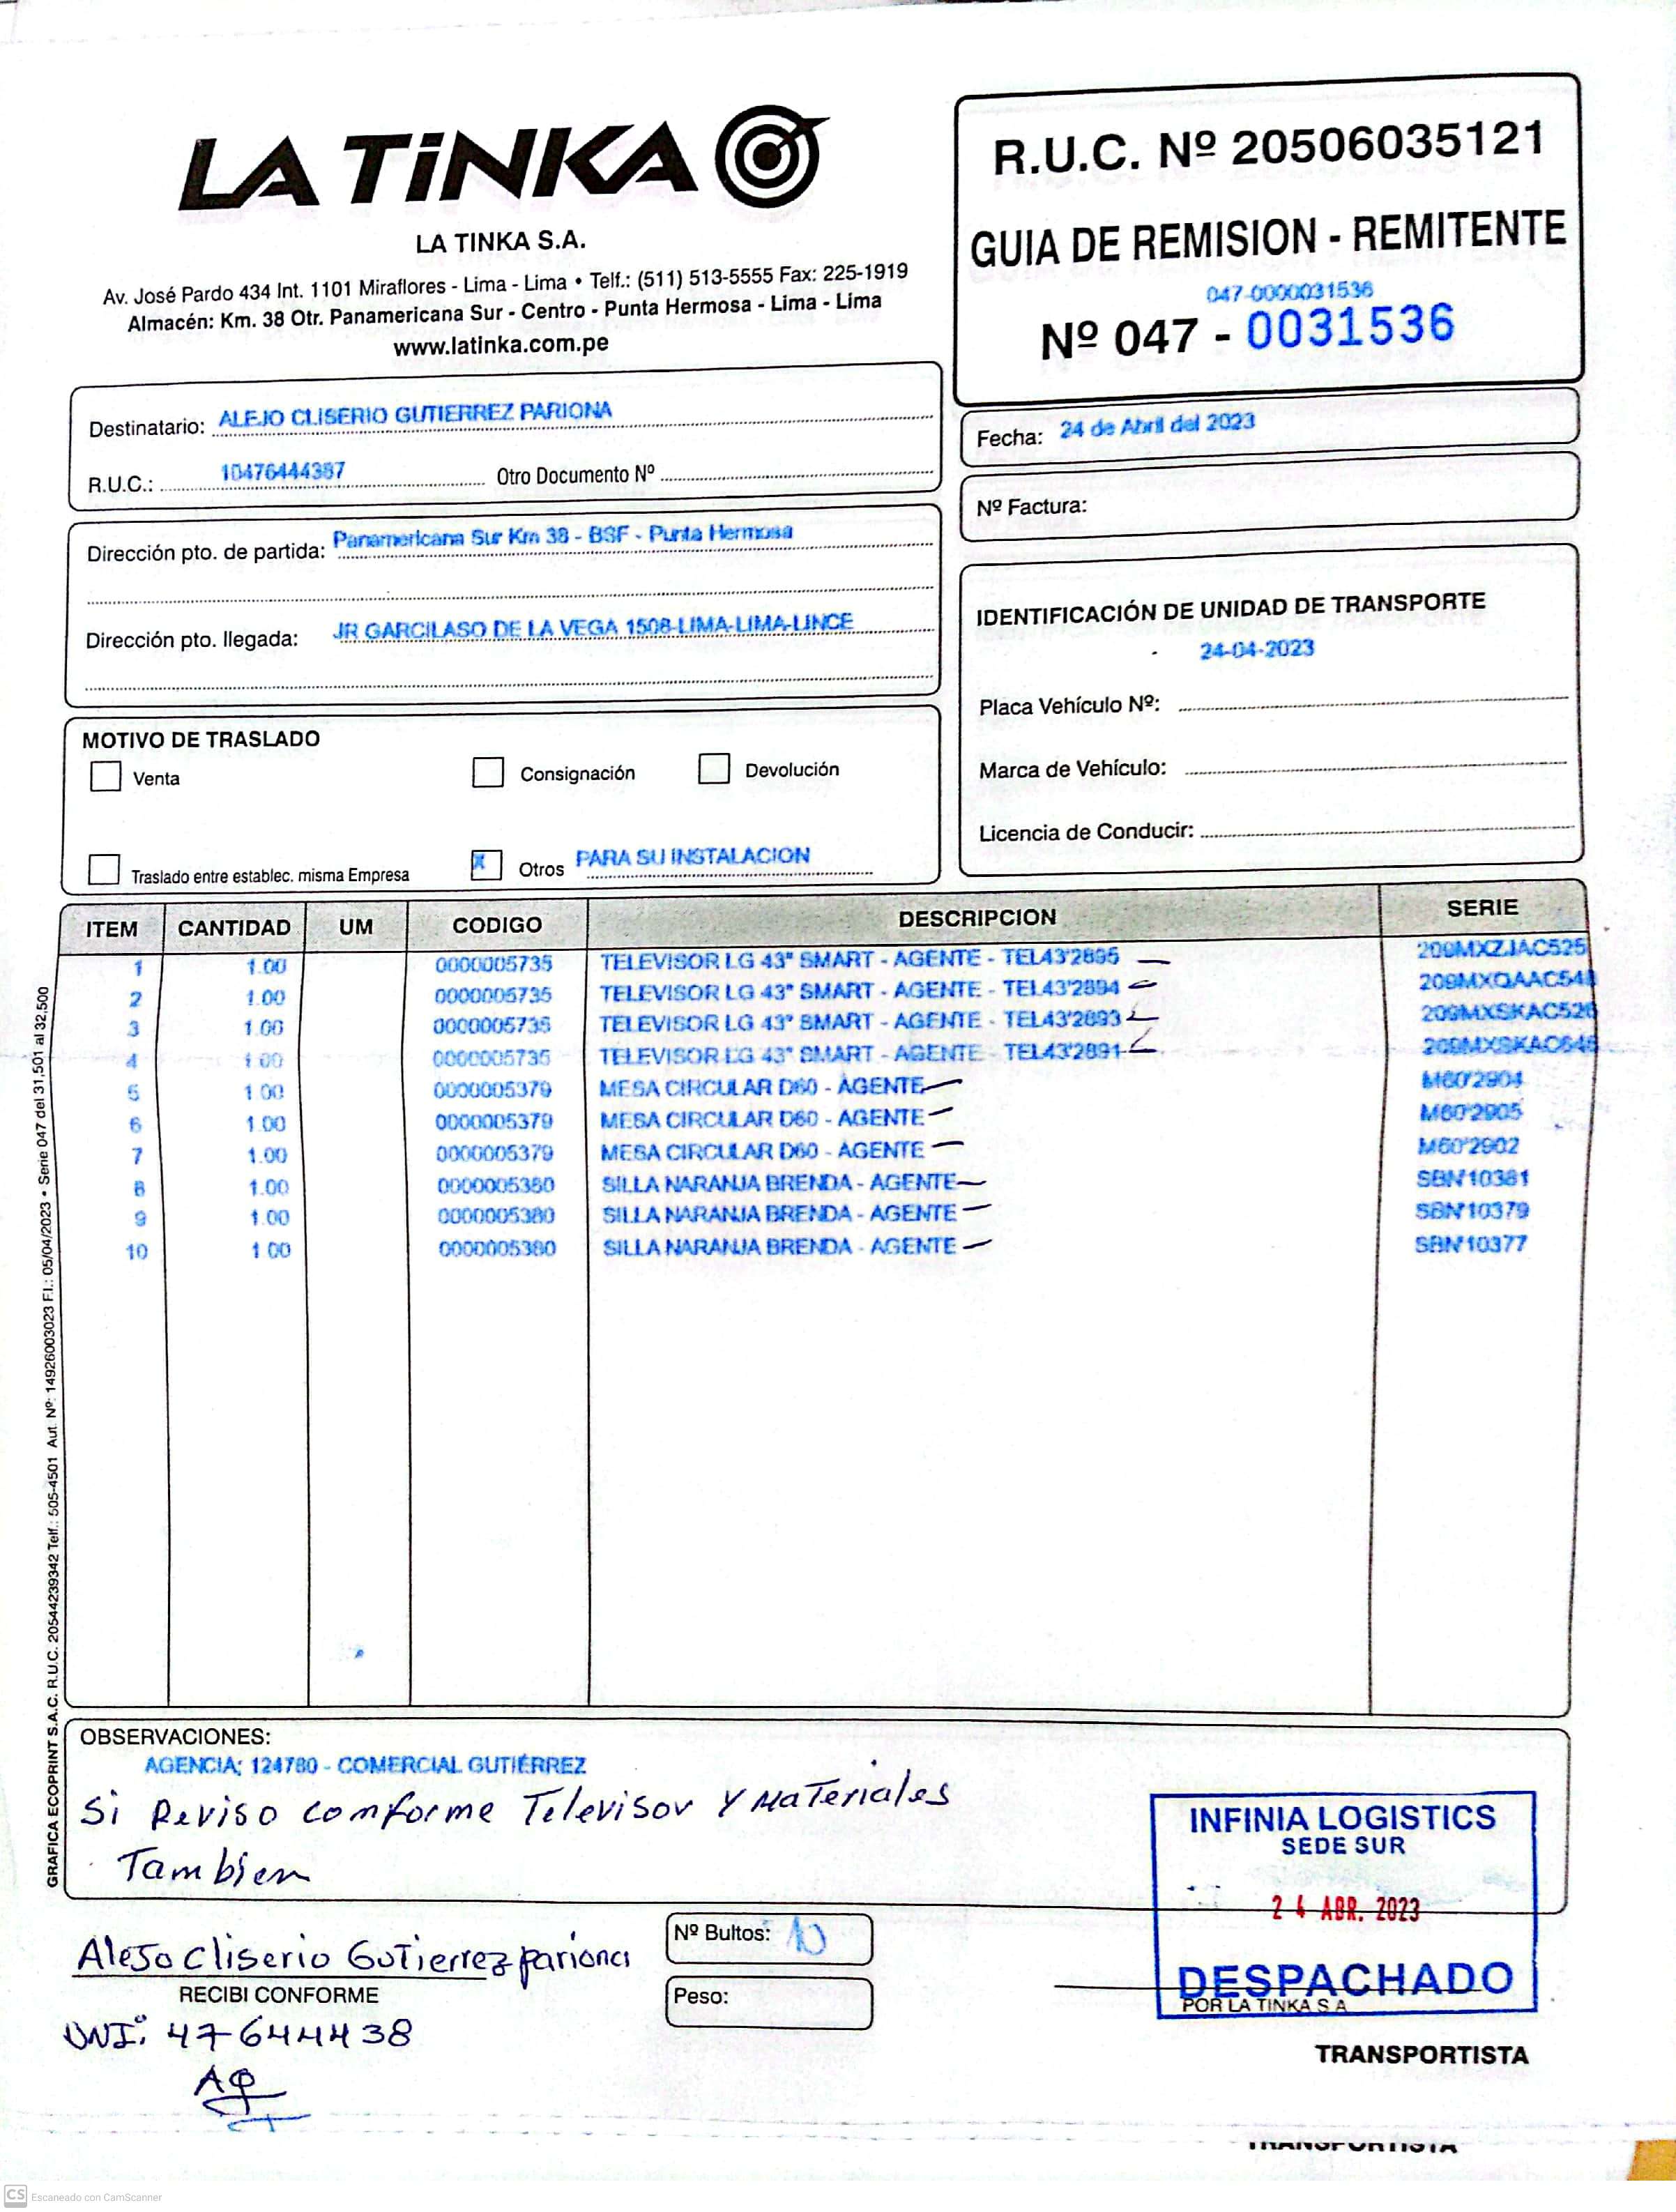 LA TiNKA
LA TINKA S.A.
Av. José Pardo 434 Int. 1101 Miraflores - Lima - Lima • Telf.: (511) 513-5555 Fax: 225-1919
Almacén: Km. 38 Otr. Panamericana Sur - Centro - Punta Hermosa - Lima - Lima
www.latinka.com.pe
R.U.C. Nº 20506035121
GUIA DE REMISION - REMITENTE
047-0000031536
Nº 047 - 0031536
Destinatario: ALEJO CLISERIO GUTIERREZ PARIONA
R.U.C.: 10476444387 Otro Documento Nº
Fecha: 24 de Abril del 2023
Nº Factura:
Dirección pto. de partida: Panamericana Sur Km 38 - BSF - Punta Hermosa
Dirección pto. llegada: JR GARCILASO DE LA VEGA 1508-LIMA-LIMA-LINCE
IDENTIFICACIÓN DE UNIDAD DE TRANSPORTE
24-04-2023
Placa Vehículo Nº:
Marca de Vehículo:
Licencia de Conducir:
MOTIVO DE TRASLADO
Venta Consignación Devolución
Traslado entre establec. misma Empresa X Otros PARA SU INSTALACION
ITEM CANTIDAD UM CODIGO DESCRIPCION SERIE
1 1.00 0000005735 TELEVISOR LG 43" SMART - AGENTE - TEL43'2895 209MXZJAC525
2 1.00 0000005735 TELEVISOR LG 43" SMART - AGENTE - TEL43'2894 209MXQAAC548
3 1.00 0000005735 TELEVISOR LG 43" SMART - AGENTE - TEL43'2893 209MXSKAC526
4 1.00 0000005735 TELEVISOR LG 43" SMART - AGENTE - TEL43'2891 209MXSKAC646
5 1.00 0000005379 MESA CIRCULAR D60 - AGENTE M60'2904
6 1.00 0000005379 MESA CIRCULAR D60 - AGENTE M60'2905
7 1.00 0000005379 MESA CIRCULAR D60 - AGENTE M60'2902
8 1.00 0000005380 SILLA NARANJA BRENDA - AGENTE SBN'10381
9 1.00 0000005380 SILLA NARANJA BRENDA - AGENTE SBN'10379
10 1.00 0000005380 SILLA NARANJA BRENDA - AGENTE SBN'10377
GRAFICA ECOPRINT S.A.C. R.U.C. 20544239342 Telf.: 505-4501 Aut. Nº: 14926003023 F.I.: 05/04/2023 • Serie 047 del 31,501 al 32,500
OBSERVACIONES:
AGENCIA: 124780 - COMERCIAL GUTIÉRREZ
Si Reviso conforme Televisor Y Materiales
Tambien
INFINIA LOGISTICS
SEDE SUR
24 ABR. 2023
DESPACHADO
POR LA TINKA S.A
Alejo Cliserio Gutierrez pariona
RECIBI CONFORME
DNI: 47644438
Nº Bultos: 10
Peso:
TRANSPORTISTA
TRANSPORTISTA
CS Escaneado con CamScanner